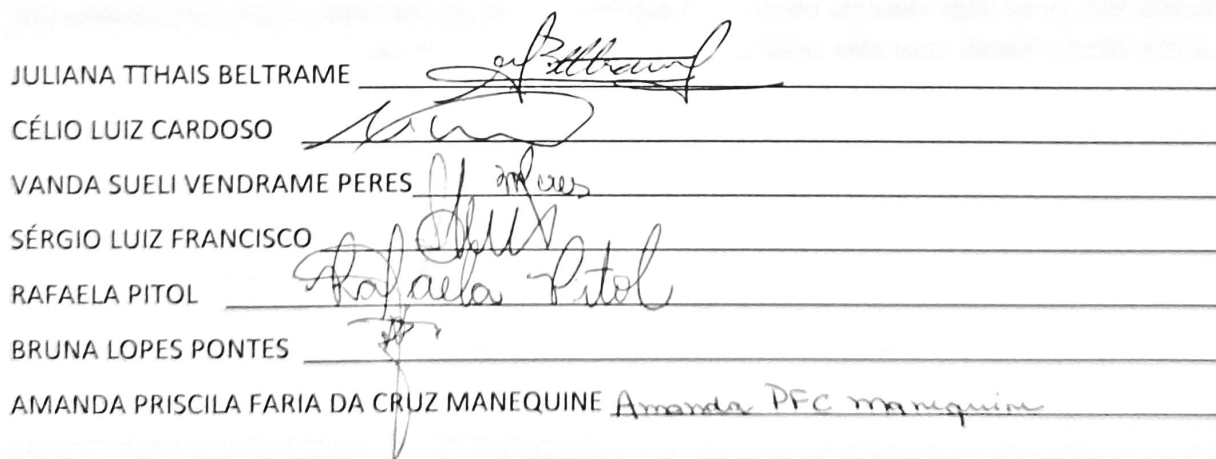 JULIANA TTHAIS BELTRAME Beltrame
CÉLIO LUIZ CARDOSO
VANDA SUELI VENDRAME PERES Peres
SÉRGIO LUIZ FRANCISCO
RAFAELA PITOL Rafaela Pitol
BRUNA LOPES PONTES
AMANDA PRISCILA FARIA DA CRUZ MANEQUINE Amanda PFC manequine